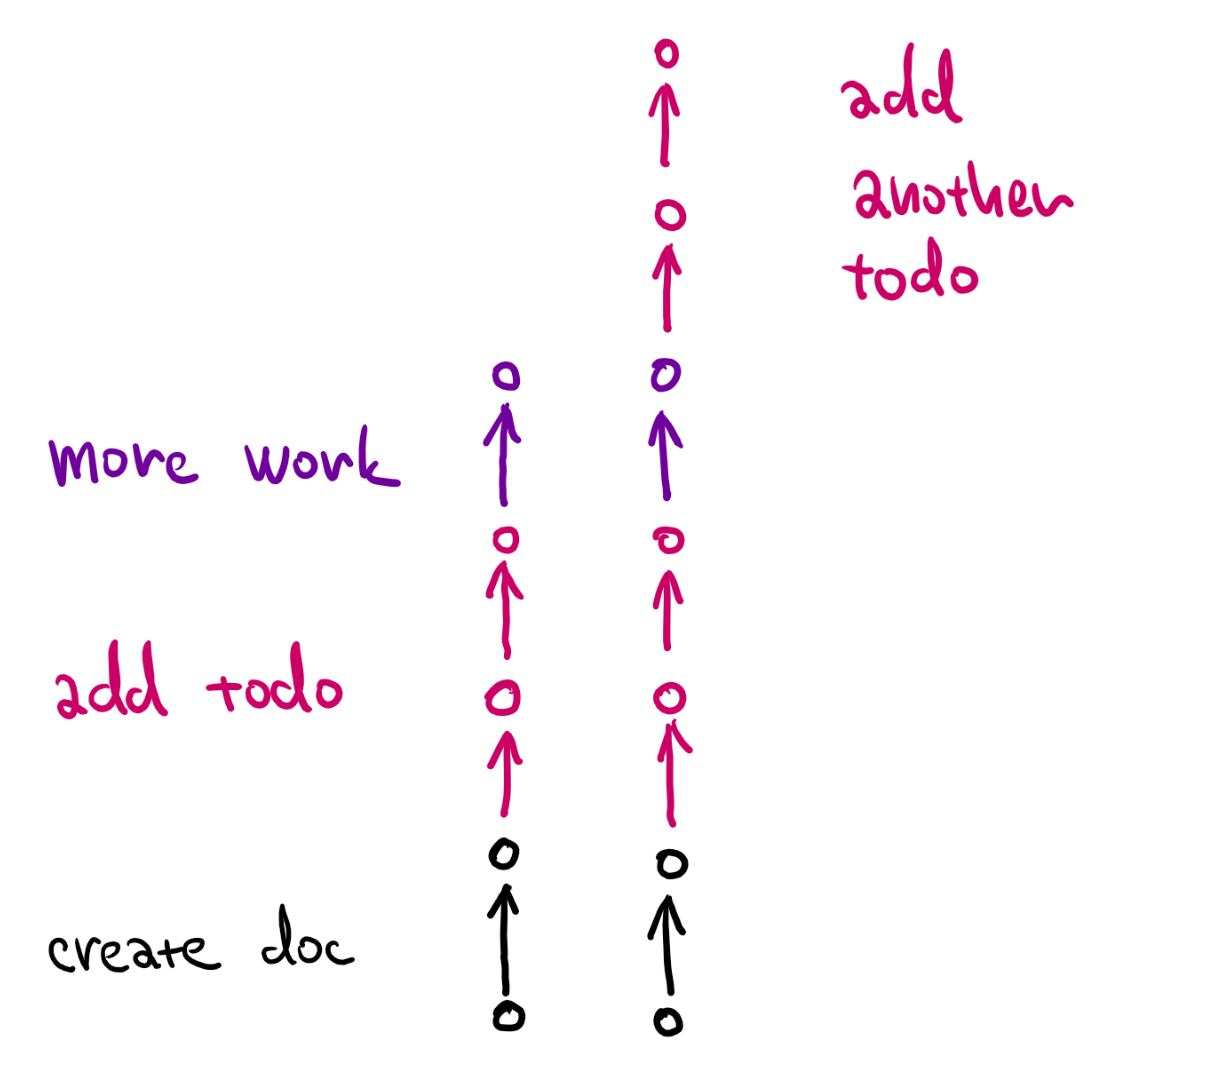 add
another
todo
more work
add todo
create doc